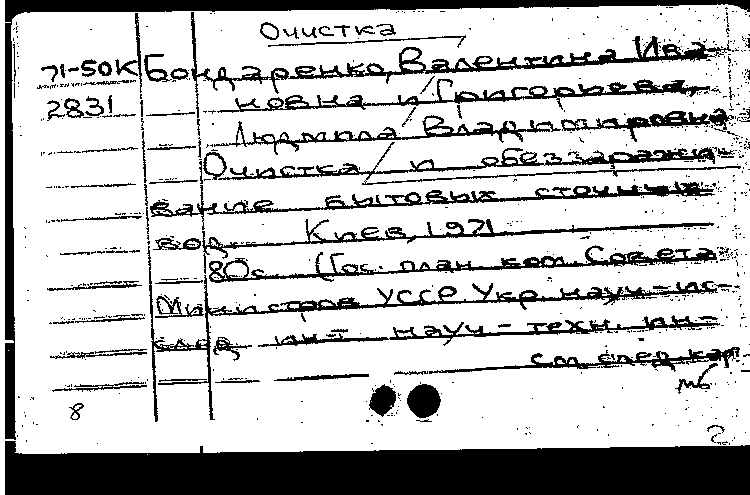 Очистка
71-50К Бондаренко, Валентина Ива-
2831 новна и Григорьева,
Людмила Владимировна
Очистка и обеззаражи-
вание бытовых сточных
вод. Киев, 1971
80с. (Гос. план. ком. Совета
Министров УССР Укр. науч-ис-
след. ин-т науч-техн. ин-
см. след. кар.
мб
8
2